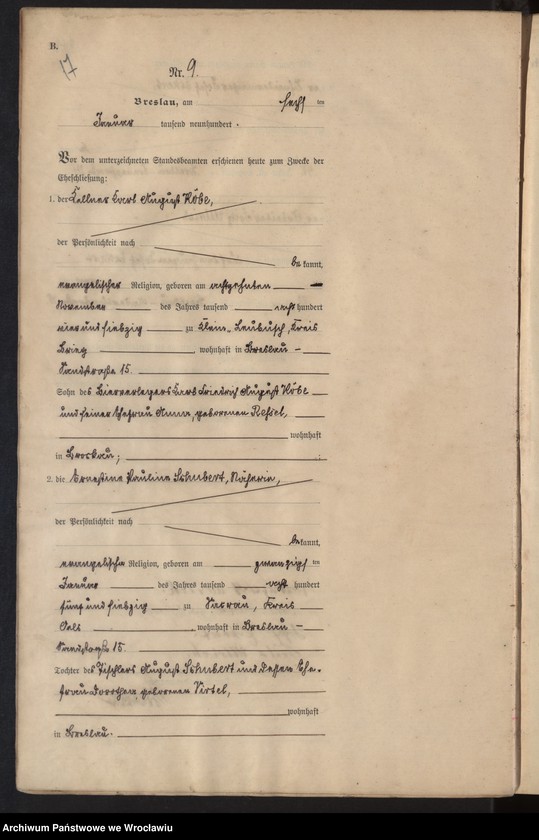 B.
17
Nr. 9.
Breslau, am sechs ten
Januar tausend neunhundert .
Vor dem unterzeichneten Standesbeamten erschienen heute zum Zwecke der
Eheschließung:
1. der Kellner Karl August Köbe,
der Persönlichkeit nach
be kannt,
evangelischer Religion, geboren am achtzehnten
November des Jahres tausend acht hundert
vier und siebzig zu Klein-Leubusch, Kreis
Brieg wohnhaft in Breslau -
Sandstraße 15.
Sohn des Bierverlegers Karl Friedrich August Köbe
und seiner Ehefrau Anna, geborenen
wohnhaft
in Brockau;
2. die Ernestine Pauline Schubert, Näherin,
der Persönlichkeit nach
be kannt,
evangelischer Religion, geboren am zwanzigs ten
Januar des Jahres tausend acht hundert
fünf und siebzig zu Sacrau, Kreis
Oels, wohnhaft in Breslau -
Sandstraße 15.
Tochter des Tischlers August Schubert und dessen Ehe-
frau Dorothea, geborenen
wohnhaft
in Breslau.
Archiwum Państwowe we Wrocławiu